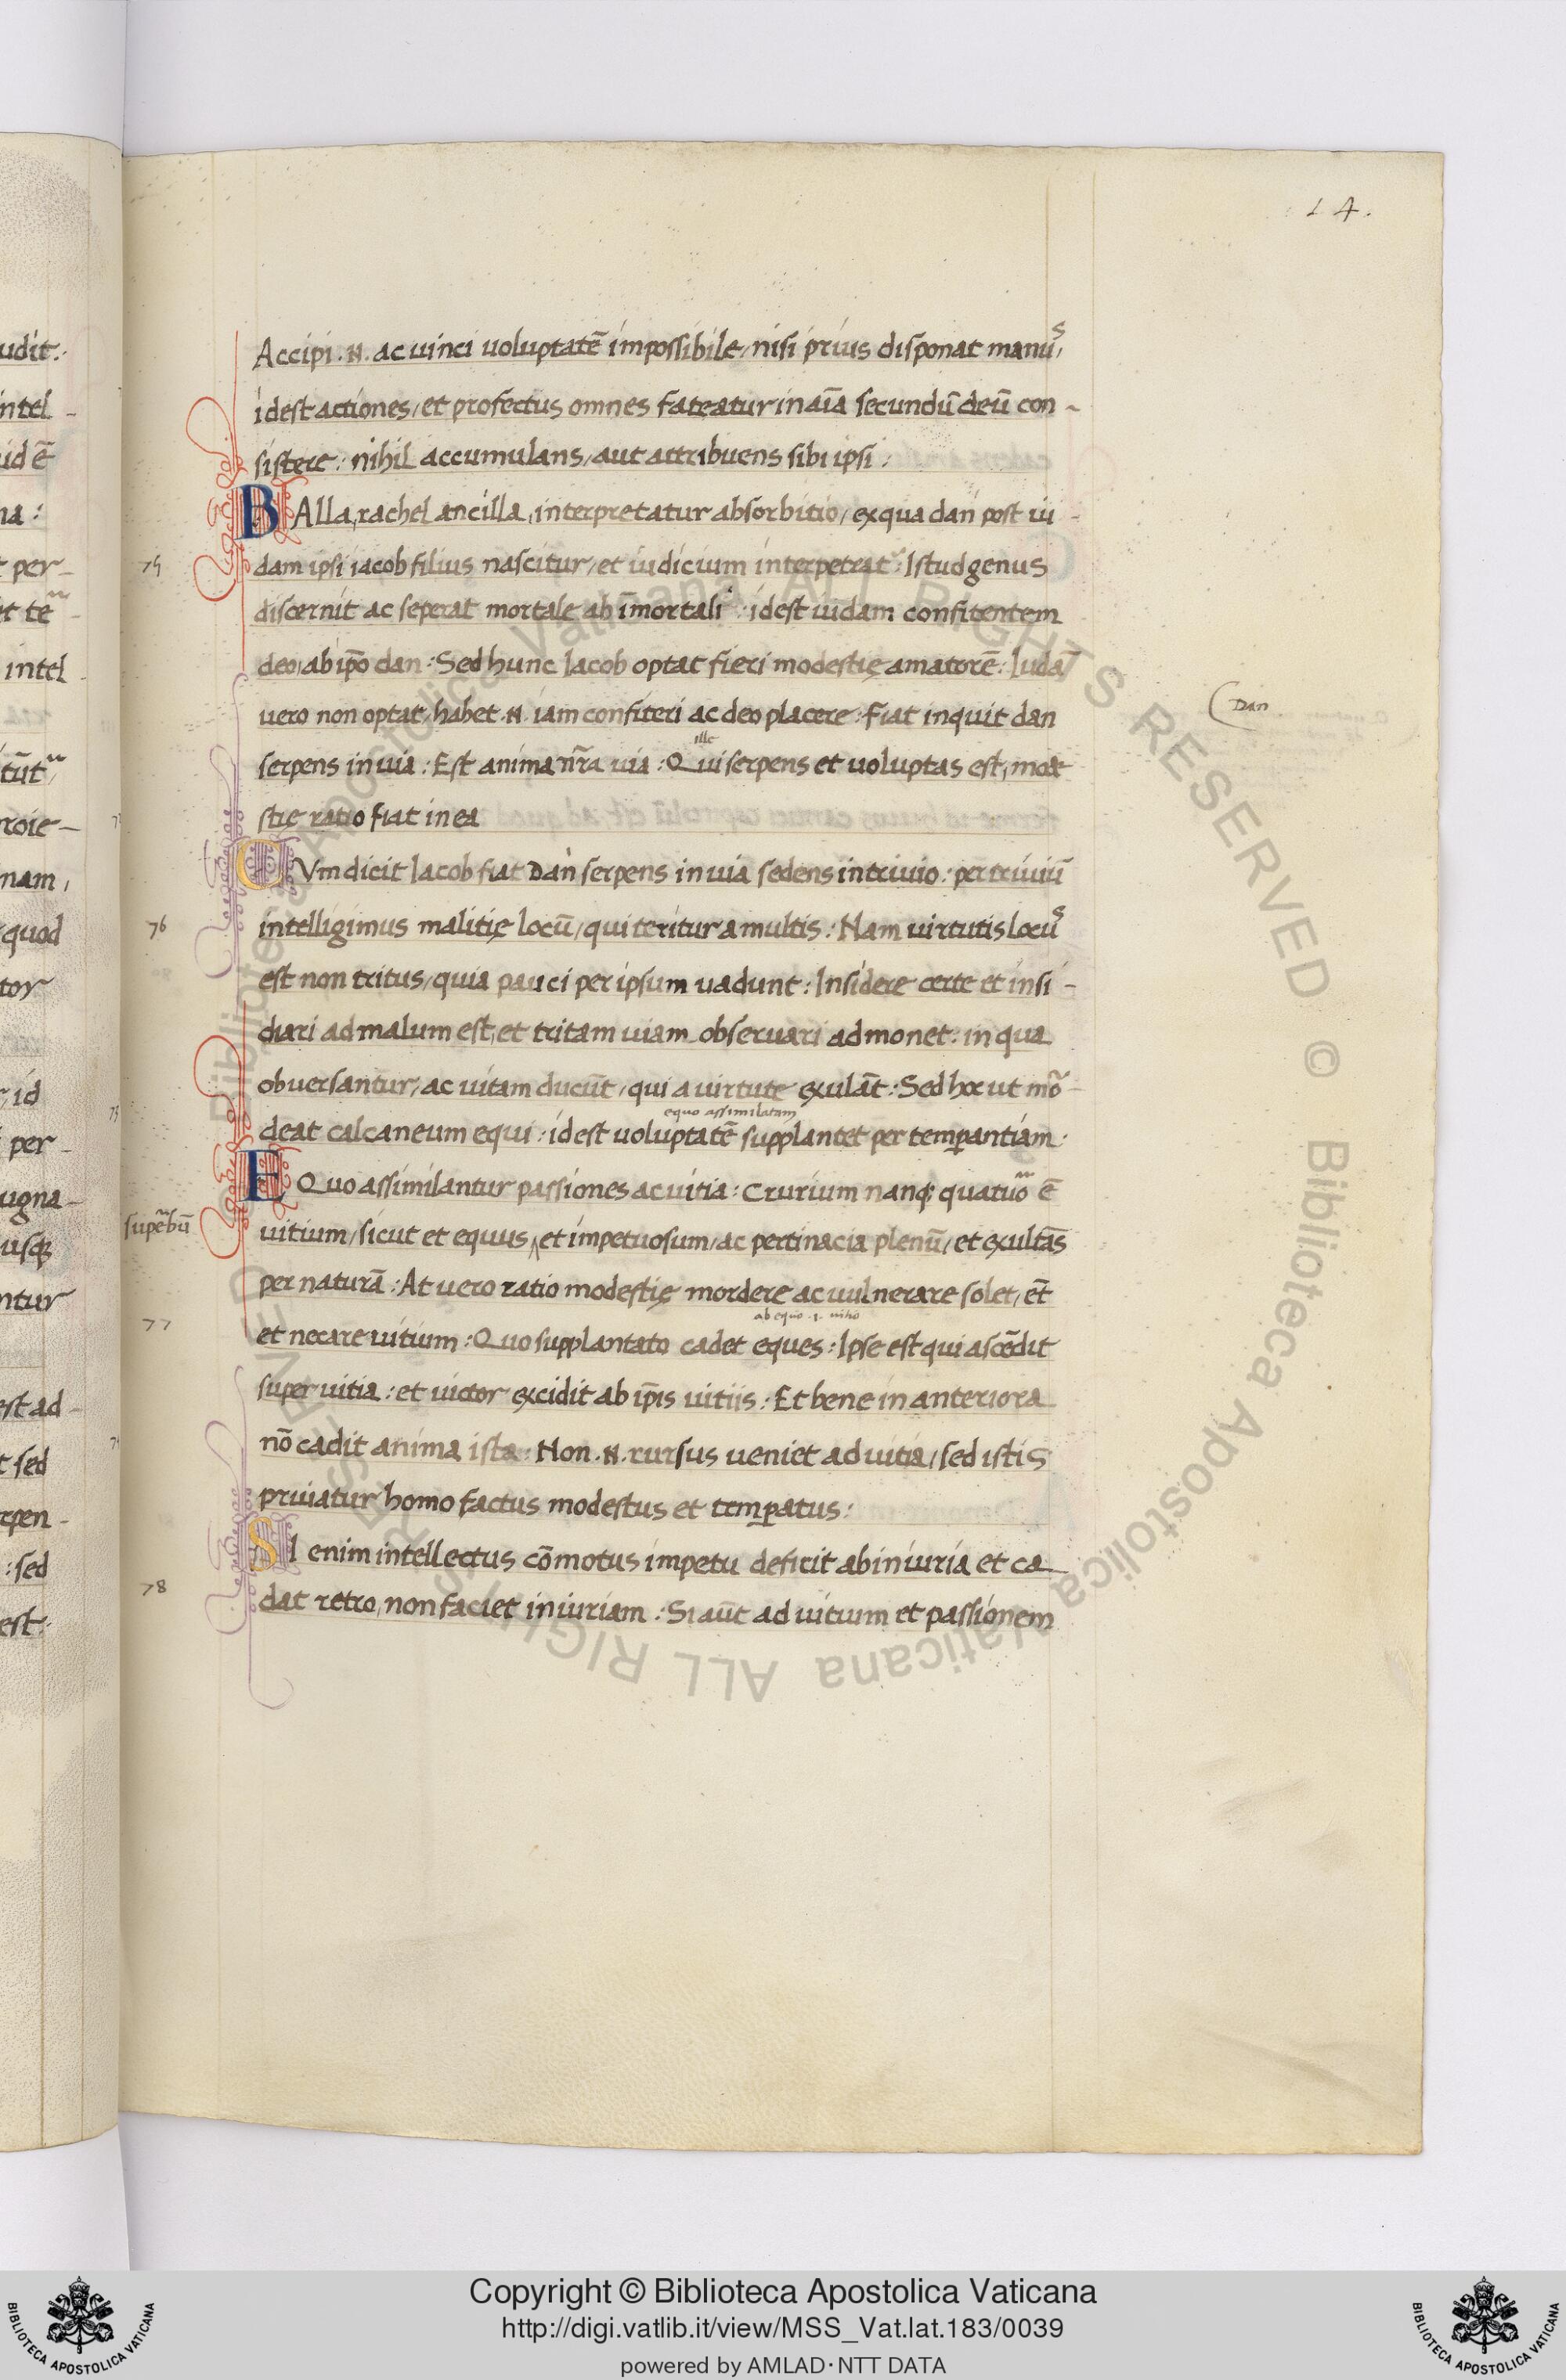 14.
Accipi .N. ac uinci uoluptatē impossibile, nisi prius disponat manuˢ,
idest actiones, et profectus omnes fateatur in aīa secundū deū con-
sistere: nihil accumulans, aut attribuens sibi ipsi:
BAlla, rachel ancilla, interpretatur absorbitio, ex qua dan post iu-
75
dam ipsi iacob filius nascitur, et iudicium interpetrat: Istud genus
discernit ac seperat mortale ab īmortali: idest iudam confitentem
deo, ab ip̄o dan: Sed hunc Iacob optat fieri modestię amatorē: Iudā
Dan
uero non optat, habet .N. iam confiteri ac deo placere: Fiat inquit dan
ille
serpens in uia: Est anima nr̄a uia: Qui serpens et uoluptas est, mode
stię ratio fiat in ea
CVm dicit Iacob fiat Dan serpens in uia sedens in triuio: per triuiū
76
intelligimus malitię locū, qui teritur a multis: Nam uirtutis locuˢ
est non tritus, quia pauci per ipsum uadunt: Insidere certe et insi-
diari ad malum est, et tritam uiam obseruari admonet: in qua
obuersantur, ac uitam ducūt, qui a uirtute exulāt: Sed hoc ut mō-
equo assimilatam
deat calcaneum equi: idest uoluptatē supplantet per temperantiam:
EQuo assimilantur passiones ac uitia: Crurium nanq; quatuō ē
supēbū
uitium, sicut et equus, et impetuosum, ac pertinacia plenū, et exultās
per naturā: At uero ratio modestię mordere ac uulnerare solet, et̄
ab equo .i. uitio
77
et necare uitium: Quo supplantato cadet eques: Ipse est qui ascēdit
super uitia: et uictor excidit ab ip̄is uitiis: Et bene in anteriora
nō cadit anima ista: Non .N. rursus ueniet ad uitia, sed istis
priuiatur homo factus modestus et temperatus:
SI enim intellectus cōmotus impetu deficit ab iniuria et ca-
78
dat retro, non faciet iniuriam: Si aūt ad uitium et passionem
Copyright © Biblioteca Apostolica Vaticana
http://digi.vatlib.it/view/MSS_Vat.lat.183/0039
powered by AMLAD·NTT DATA
BIBLIOTECA APOSTOLICA VATICANA
BIBLIOTECA APOSTOLICA VATICANA